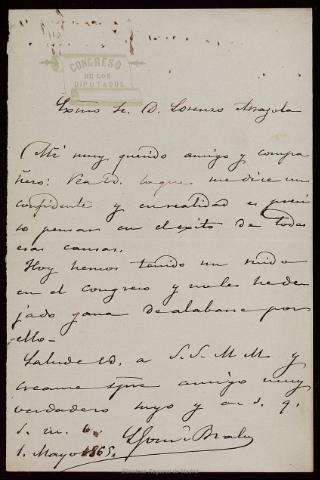 CONGRESO
DE LOS
DIPUTADOS.
Exmo Sr. D. Lorenzo Arrazola
Mi muy querido amigo y compa
ñero: Vea Vd. lo que me dice un
confidente y en realidad es preci
so pensar en el exito de todas
esas cosas.
Hoy hemos tenido un ruido
en el Congreso y no les he de
jado gana de alabarse por
ello.
Salude Vd. a S.S.M M y
creame spre amigo muy
verdadero suyo y q. s. q.
s. m. b.
1. Mayo 1865.